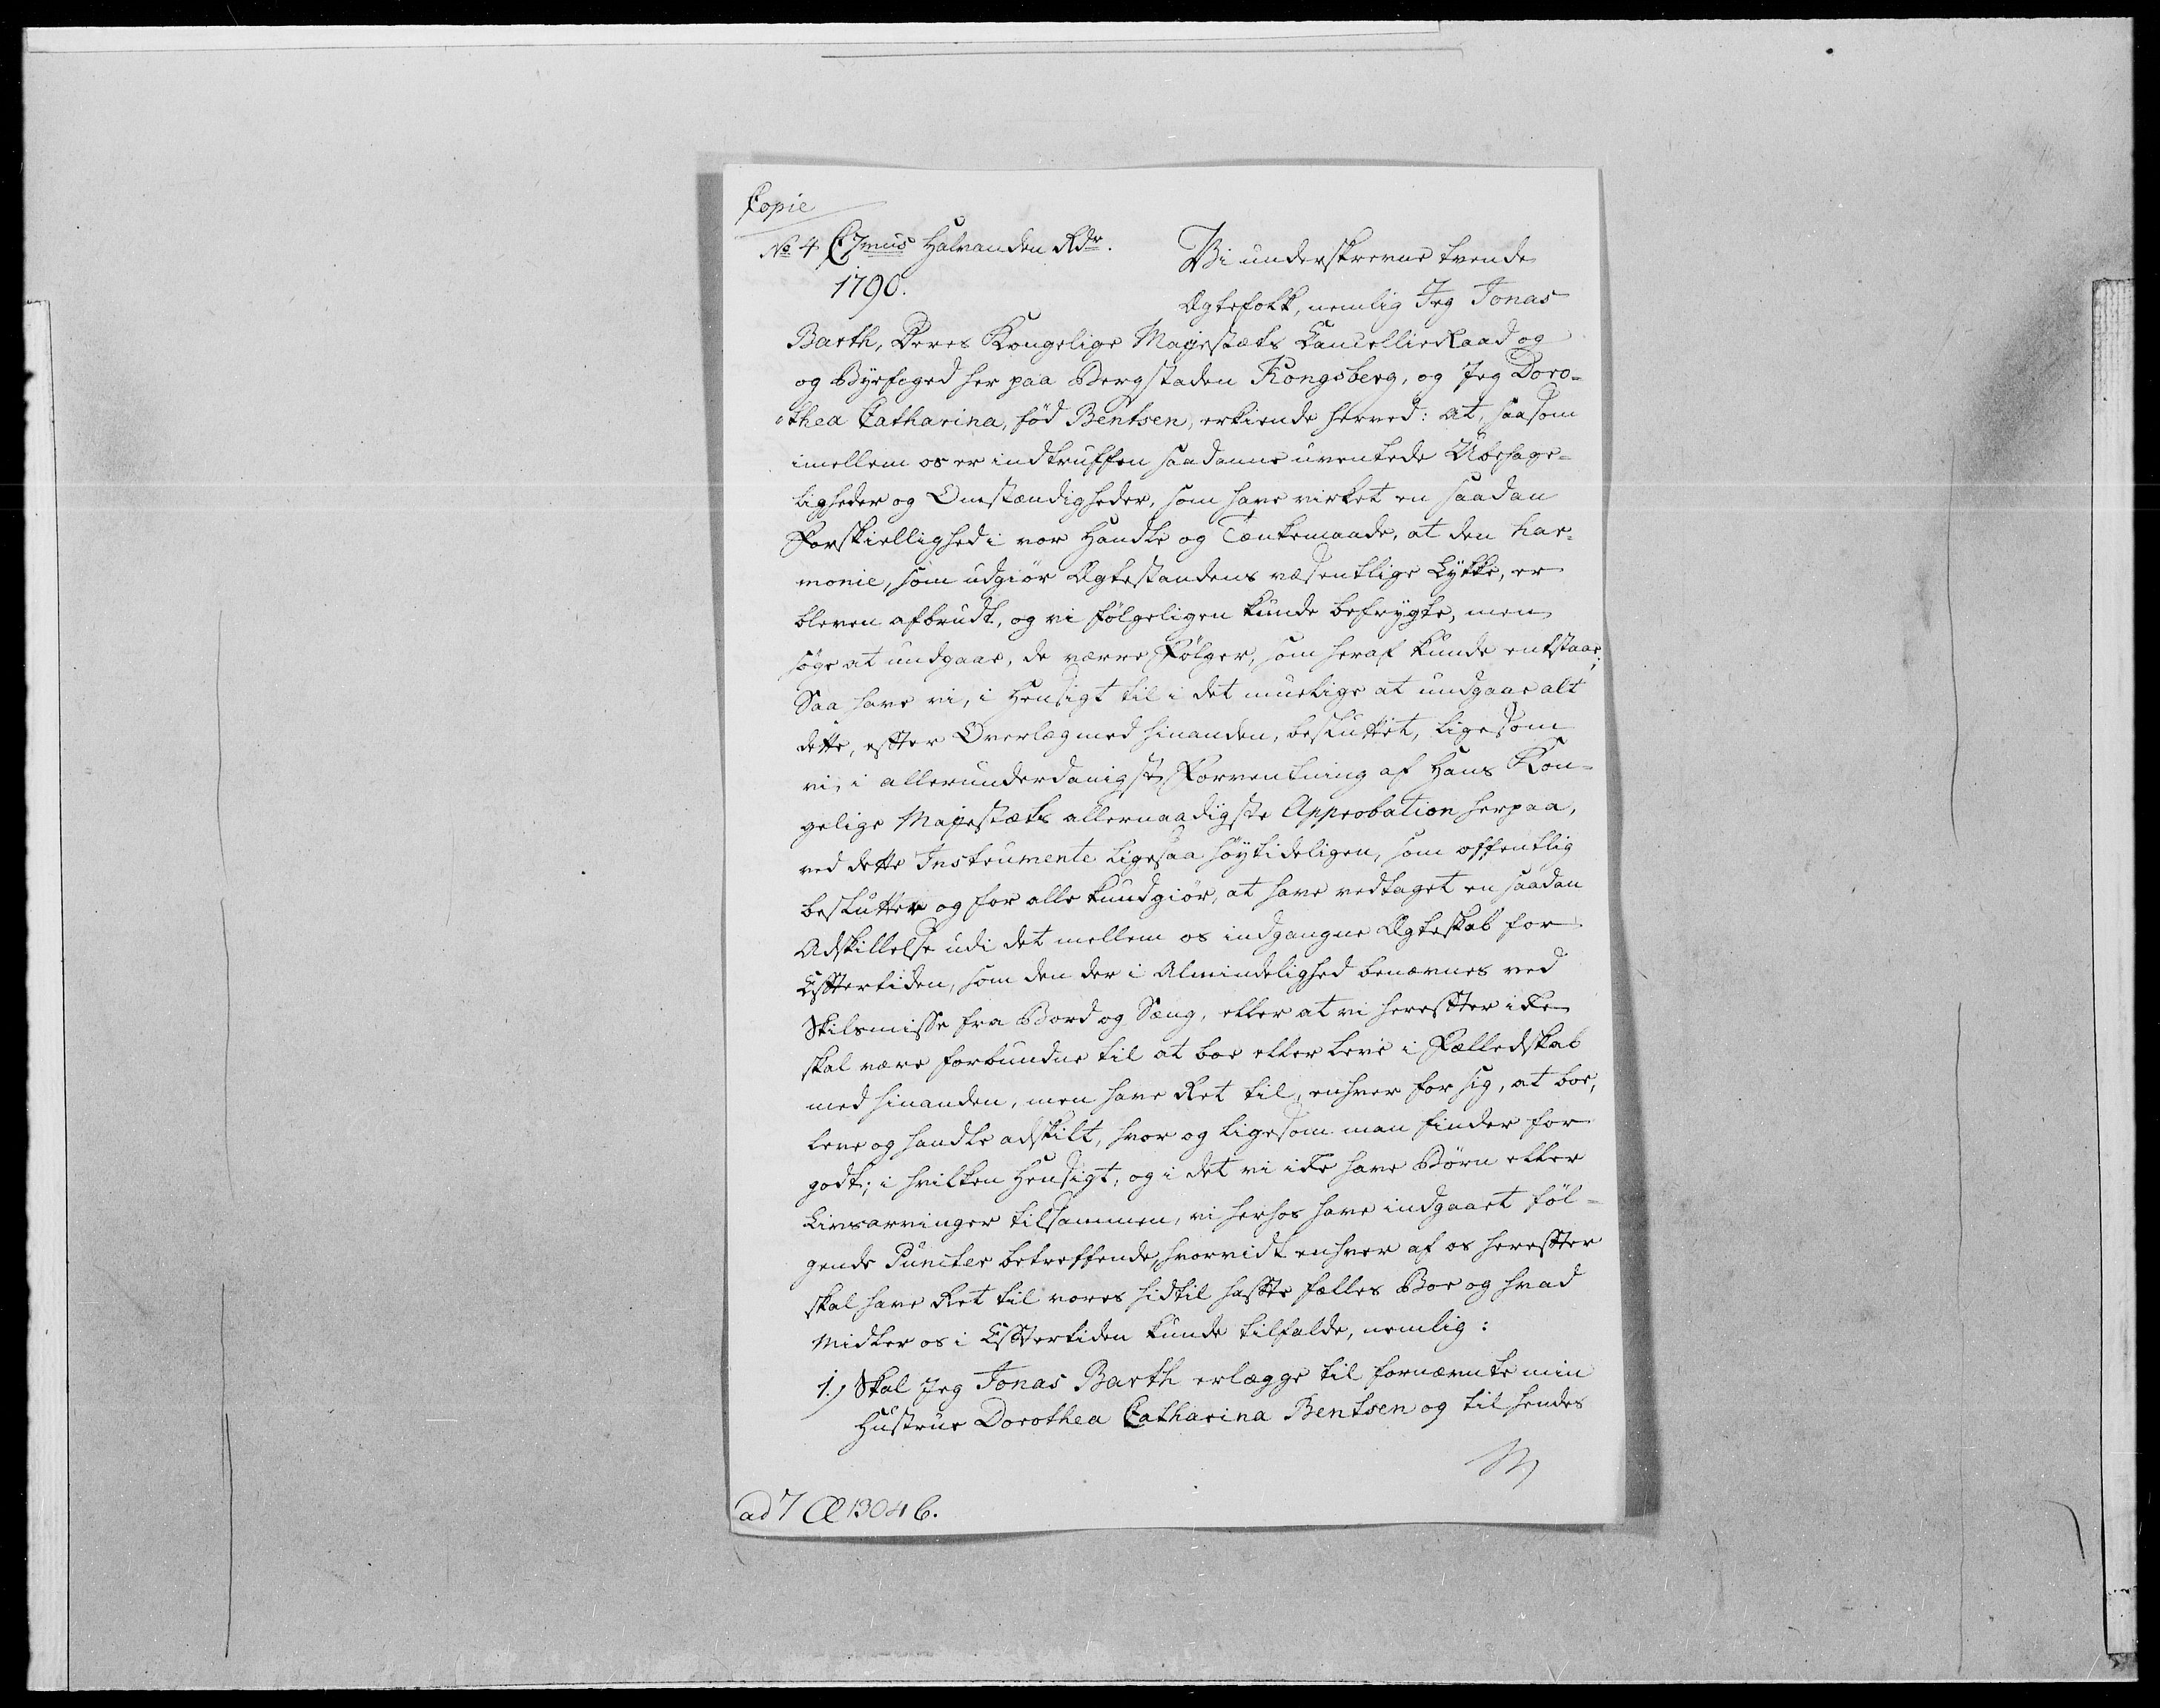 Copie
No 4 C 7mus Halvanden Rdr.
1790.
Vi underskrevne tvende
Ægtefolk, nemlig Jeg Jonas
Barth, Deres Kongelige Majestæts Cancellie Raad og
og Byefoged her paa Bergstaden Kongsberg, og Jeg Doro-
thea Catharina, fød Bentsen, erkiende herved: at, saasom
imellem os er indtruffen saadanne uventede Ubehage-
ligheder og Omstændigheder, som have virket en saadan
Forskiellighed i vor Handle og Tænkemaade, at den har-
monie, som udgiør Ægtestandens væsentlige Lykke, er
bleven afbrudt, og vi følgeligen kunde befrygte, men
søge at undgaae, de værre Følger, som heraf kunde entstaae;
Saa have vi, i Hensigt til i det muelige at undgaae alt
dette, efter Overlæg med hinanden, besluttet, ligesom
vi, i allerunderdanigste Forventning af Hans Kon-
gelige Majestæts allernaadigste Approbation herpaa,
ved dette Instrumente ligesaa høytideligen, som offentlig
beslutter og for alle kundgiør, at have vedtaget en saadan
Adskillelse udi det mellem os indgangne Ægteskab for
Efftertiden, som den der i Almindelighed benævnes ved
Skilsmisse fra Bord og Sæng, eller at vi hereffter ikke
skal være forbundne til at boe eller leve i Fælledskab
med hinanden, men have Ret til, enhver for sig, at boe,
leve og handle adskilt, hvor og ligesom man finder for
godt; i hvilken Hensigt, og i det vi ikke have Børn eller
Livsarvinger tilsammen, vi herhos have indgaaet føl-
gende Puncter betreffende, hvorvidt enhver af os hereffter
skal have Ret til vores hidtil haffte fælles Boe og hvad
Midler os i Efftertiden kunde tilfalde, nemlig:
1.) Skal Jeg Jonas Barth erlægge til fornævnte min
Hustrue Dorothea Catharina Bentsen og til hendes
ad 7 Æ 1304 6.